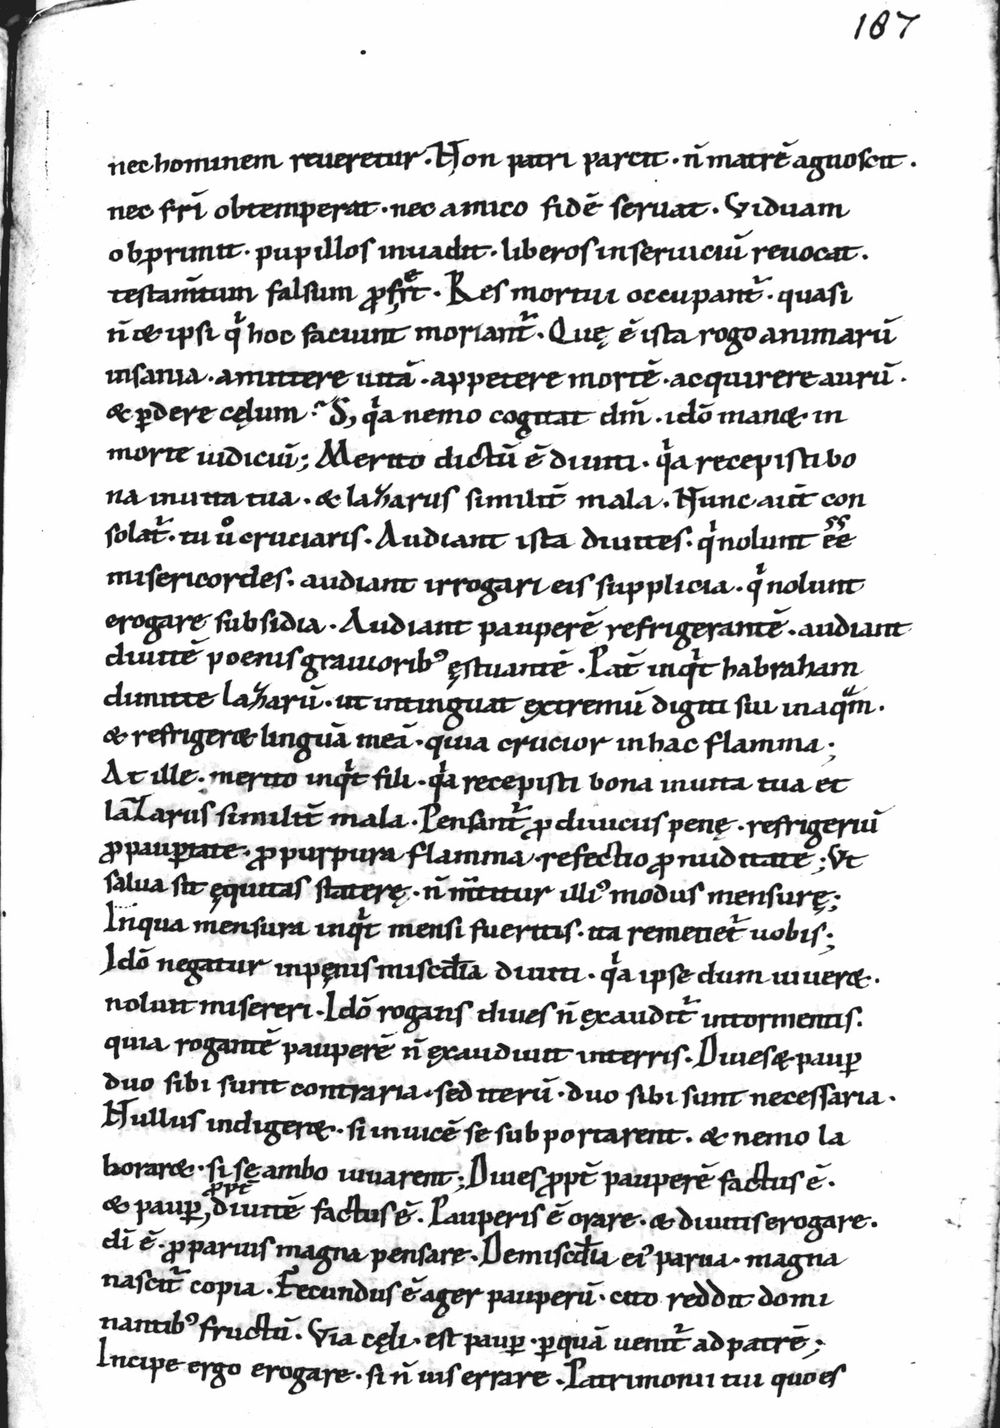 187
nec hominem reueretur. Non patri parcit. n̄ matrē agnoscit.
nec fr̄i obtemperat. nec amico fidē seruat. Viduam
obprimit. pupillos inuadit. liberos in seruiciū reuocat.
testam̄tum falsum ꝓfert. Res mortui occupant᷑. quasi
n̄ & ipsi qͥ hoc faciunt moriant᷑. Quę ē ista rogo animarū
insania. amittere uitā. appetere mortē. acquirere aurū.
& ꝑdere cęlum? S; qͣa nemo cogitat dm̄. idō man& in
morte iudiciū; Merito dictū ē diuiti. qͣa recepisti bo
na in uita tua. & lazarus similit̄ mala. Nunc aut̄ con
solat᷑. tu uͦ cruciaris. Audiant ista diuites. qͥ nolunt ēē
misericordes. audiant irrogari eis supplicia. qͥ nolunt
erogare subsidia. Audiant pauperē refrigerantē. audiant
diuitē poenis grauiorib᾽ ęstuantē. Pat̄ inqͥt habraham
dimitte lazarū. ut intinguat extremū digiti sui in aqͣm.
& refriger& linguā meā. quia crucior in hac flamma;
At ille. merito inqͥt fili. qͣa recepisti bona in uita tua et
lazarus similit̄ mala. Pensant᷑ ꝓ diuicus penę. refrigeriū
ꝓ pauꝑtate. ꝓ purpura flamma. refectio ꝓ nuditate; Vt
salua sit ęquitas staterę. n̄ m̄titur illi᾽ modus mensurę;
In qua mensura inqͥt mensi fueritis. ita remetiet᷑ uobis;
Idō negatur in pęnis misc̄dia diuiti. qͣa ipse dum uiuer&.
noluit misereri. Idō rogans diues n̄ exaudit᷑ in tormentis.
quia rogantē pauperē n̄ ęxaudiuit in terris. Diues & pauꝑ
duo sibi sunt contraria. sed iterū. duo sibi sunt necessaria.
Nullus indiger&. si inuicē se subportarent. & nemo la
borar&. si sę ambo iuuarent; Diues ꝓpt̄ pauperē factus ē.
& pauꝑ, ꝓpt̄ diuitē factus ē. Pauperis ē orare. & diuitis erogare.
dī ē. ꝓ paruis magna pensare. De misc̄dia ei᾽ parua. magna
nascit᷑ copia. Fecundus ē ager pauperū. cito reddit domi
nantib᾽ fructū. Via cęli. est pauꝑ. ꝑ quā uenit᷑ ad patrē;
Incipe ergo erogare. si n̄ uis errare. Patrimonii tui quo es